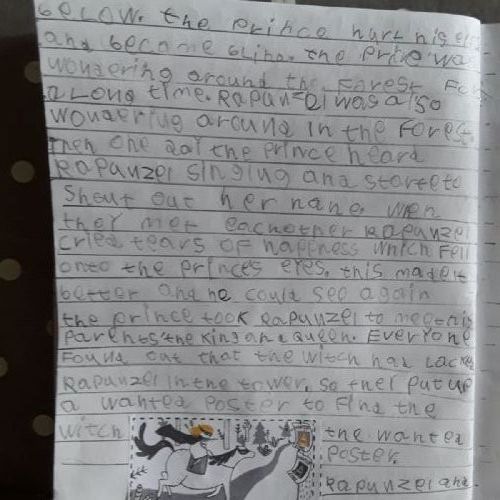 below. the prince hurt his eyes
and become blind. the prince was
wondering around the forest for
a long time. Rapunzel was also
wondering around in the forest.
then one dai the prince heard
Rapanzel singing and storte to
shout out her name. when
they met eachother Rapunzel
cried tears of happness which fell
onto the princes eyes. this made it
better and he could see again
the prince took Rapunzel to meet his
parents the king and queen. Everyone
found out that the witch had locked
Rapunzel in the tower. so they put up
a wanted poster to find the
witch the wanted
poster.
Rapunzel and